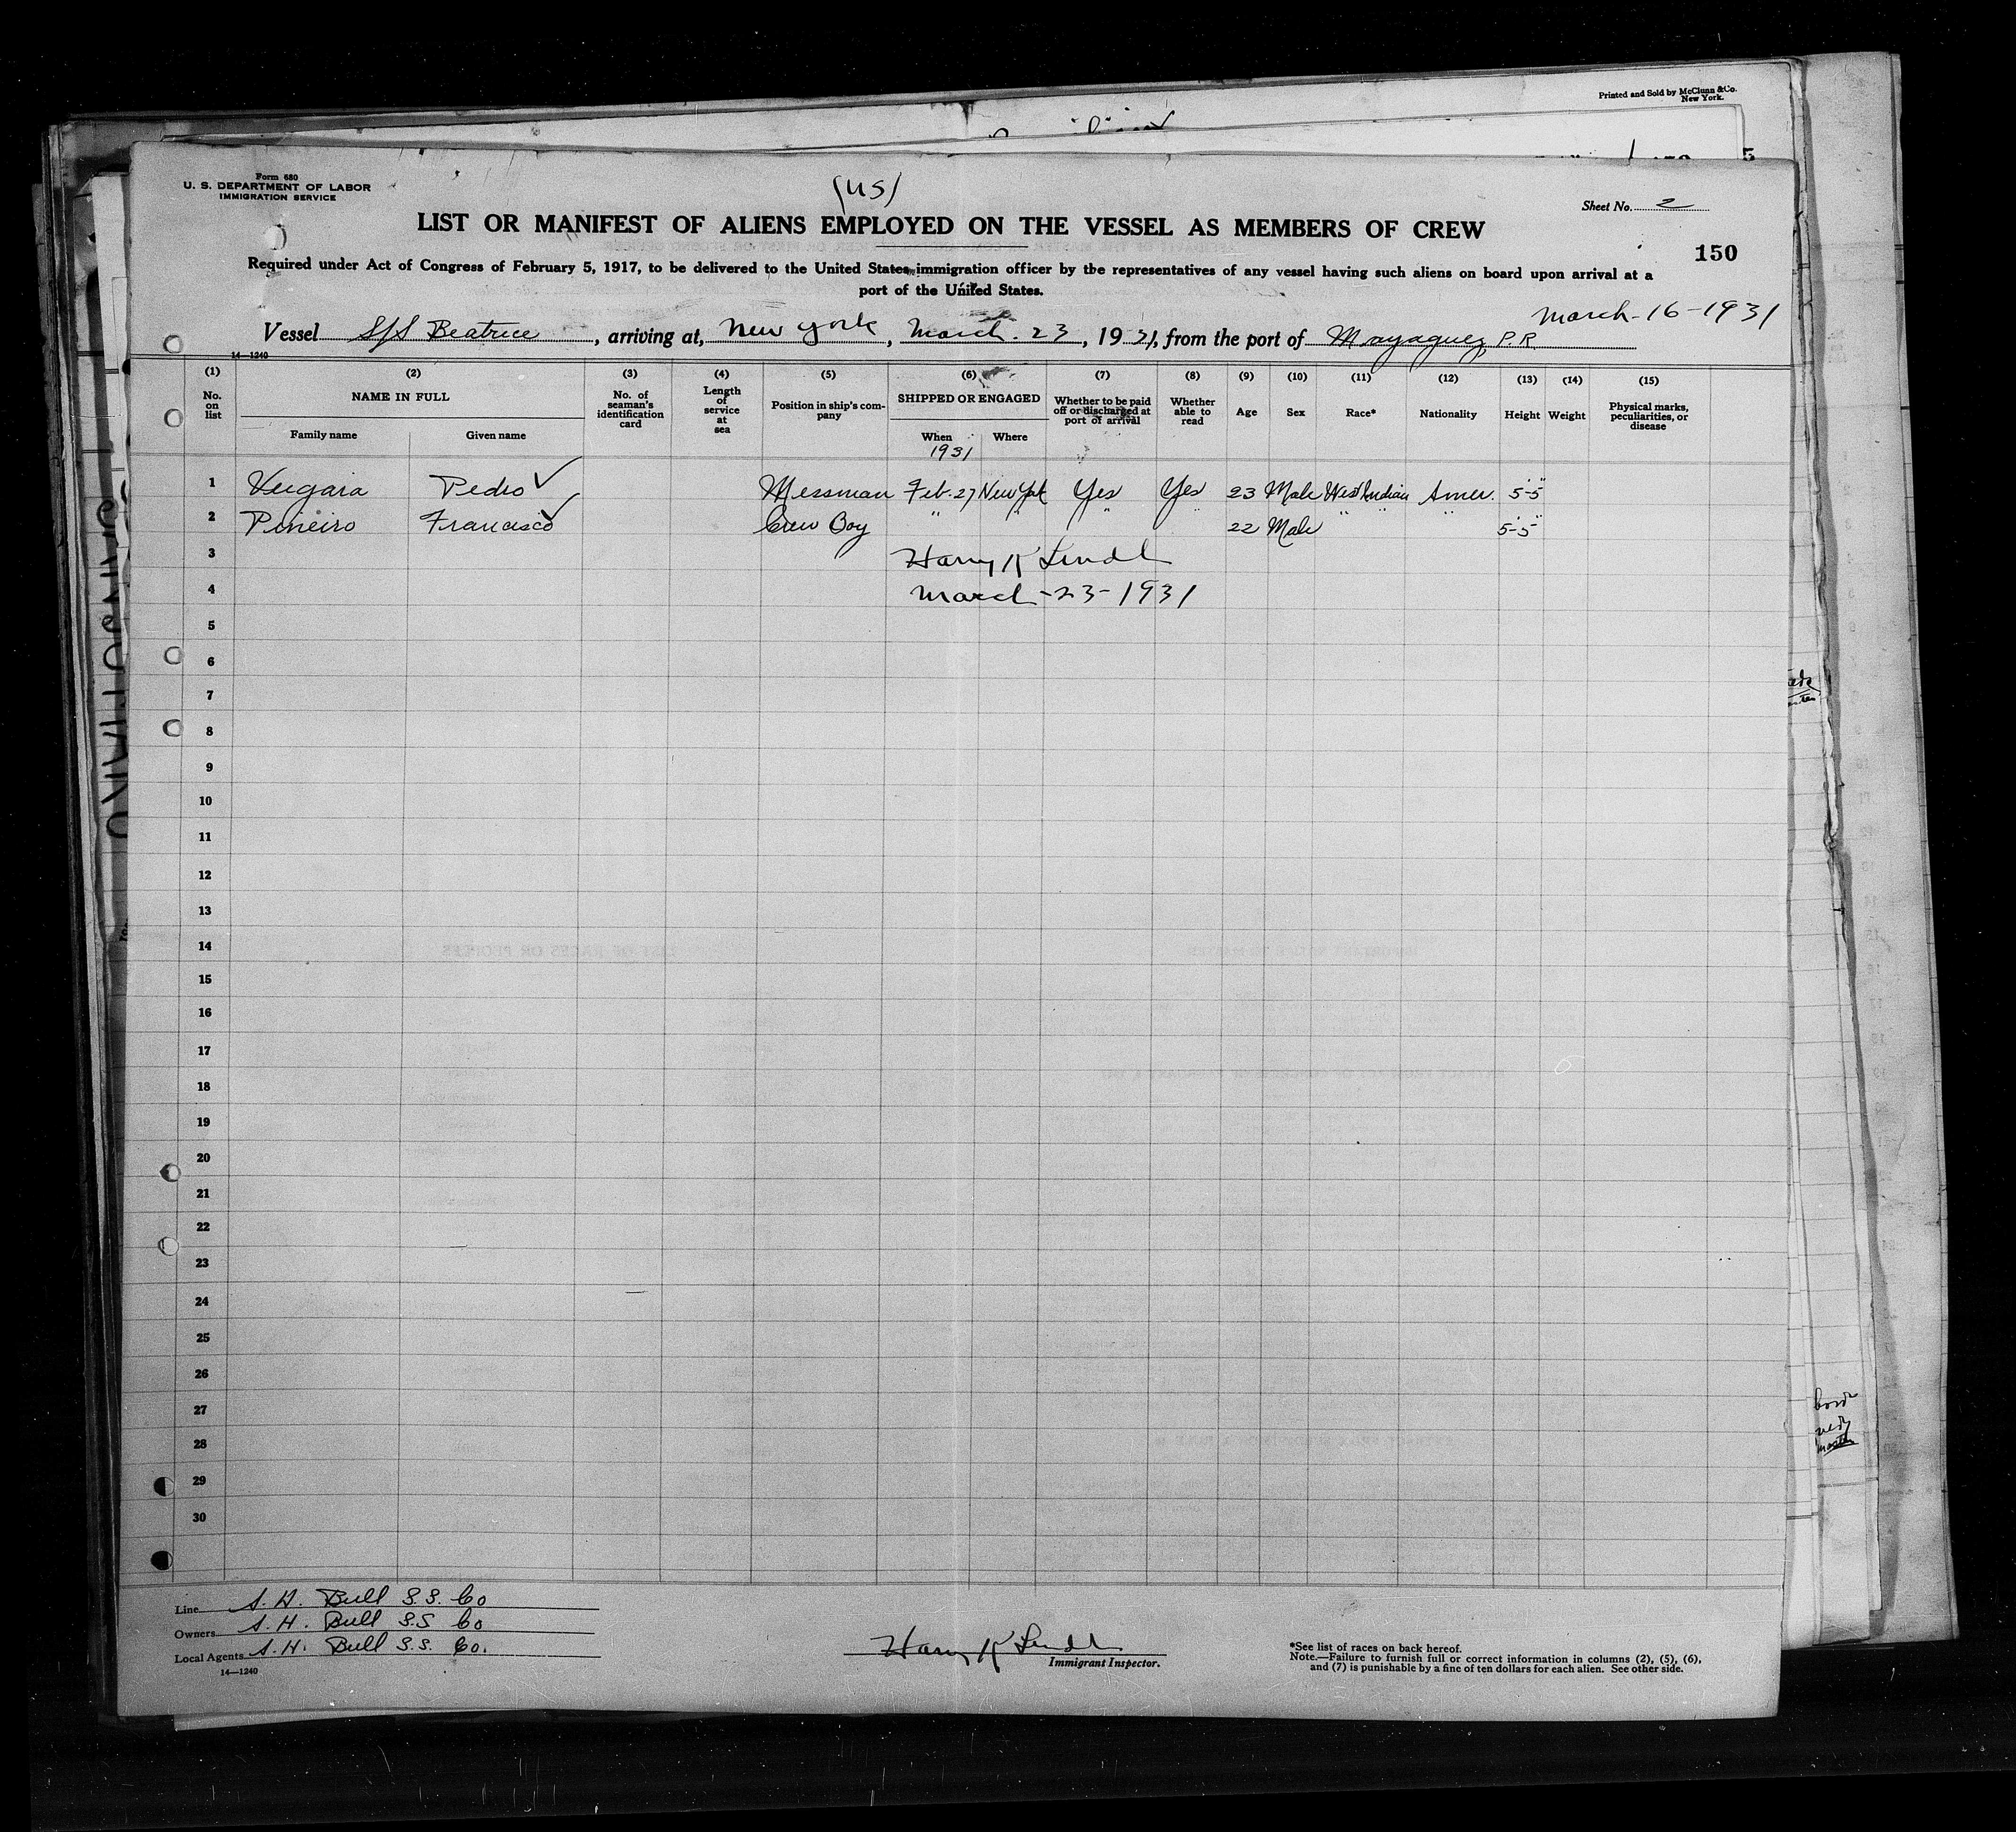 Printed and Sold by McClunn & Co.
New York.
Form 680
U. S. DEPARTMENT OF LABOR
IMMIGRATION SERVICE
(US)
Sheet No. 2
LIST OR MANIFEST OF ALIENS EMPLOYED ON THE VESSEL AS MEMBERS OF CREW
150
Required under Act of Congress of February 5, 1917, to be delivered to the United States immigration officer by the representatives of any vessel having such aliens on board upon arrival at a
port of the United States.
March-16-1931
Vessel S/S Beatrice, arriving at, New York, March. 23, 1931, from the port of Mayaguez P.R.
14—1240
(1) (2) (3) (4) (5) (6) (7) (8) (9) (10) (11) (12) (13) (14) (15)
No. on list
NAME IN FULL
Family name Given name
No. of seaman's identification card
Length of service at sea
Position in ship's company
SHIPPED OR ENGAGED
When Where
1931
Whether to be paid off or discharged at port of arrival
Whether able to read
Age
Sex
Race*
Nationality
Height
Weight
Physical marks, peculiarities, or disease
1 Vergara Pedro ✓ Messman Feb. 27 New York Yes Yes 23 Male West Indian Amer. 5'-5"
2 Pineiro Francisco ✓ Crew Boy " " " " 22 Male " " " 5'-5"
3 Harry K
4 March-23-1931
5
6
7
8
9
10
11
12
13
14
15
16
17
18
19
20
21
22
23
24
25
26
27
28
29
30
Line A. H. Bull S.S. Co
Owners A. H. Bull S.S Co
Local Agents A. H. Bull S.S. Co.
14—1240
Harry K
Immigrant Inspector.
*See list of races on back hereof.
Note.—Failure to furnish full or correct information in columns (2), (5), (6),
and (7) is punishable by a fine of ten dollars for each alien. See other side.